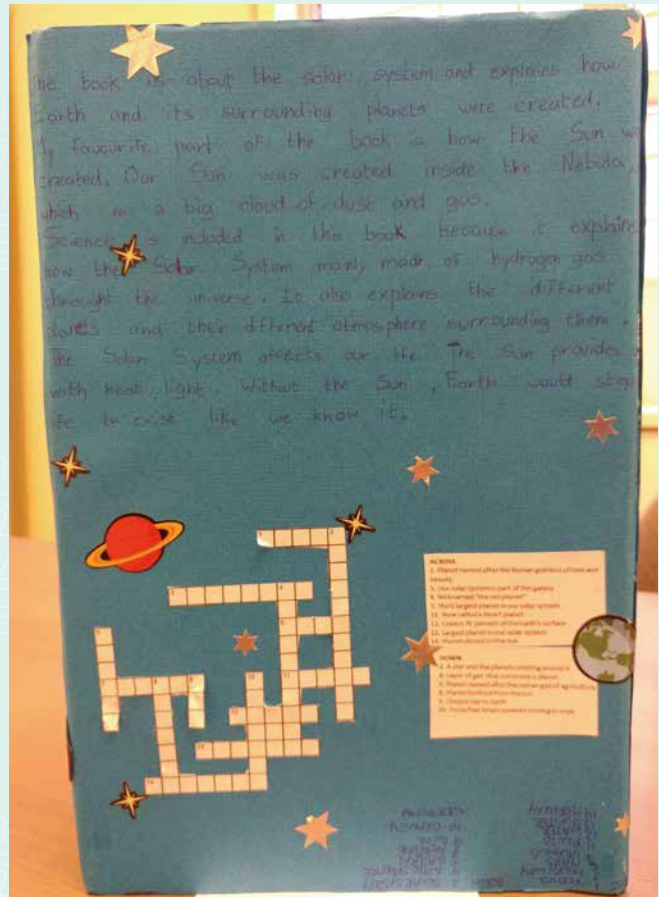 he book is about the solar system and explains how
Earth and its surrounding planets were created.
My favourite part of the book is how the Sun wa
created. Our Sun was created inside the Nebula,
which is a big cloud of dust and gas.
Science is included in this book because it explains
how the Solar System mainly made of hydrogen gas
throught the universe. It also explains the different
planets and their different atmosphere surrounding them.
The Solar System affects our life. The Sun provides
with heat, light. Without the Sun, Earth would stop
life to exist like we know it.
ACROSS
1. Planet named after the Roman goddess of love and
beauty
5. Our solar system is part of this galaxy
6. Nicknamed "the red planet"
7. Third largest planet in our solar system
11. Now called a dwarf planet
12. Covers 70 percent of the Earth's surface
13. Largest planet in our solar system
14. Planet closest to the sun
DOWN
2. A star and the planets rotating around it
3. Layer of gas that surrounds a planet
4. Planet named after the roman god of agriculture
8. Planet furthest from the sun
9. Closest star to Earth
10. Force that keeps planets moving in orbit